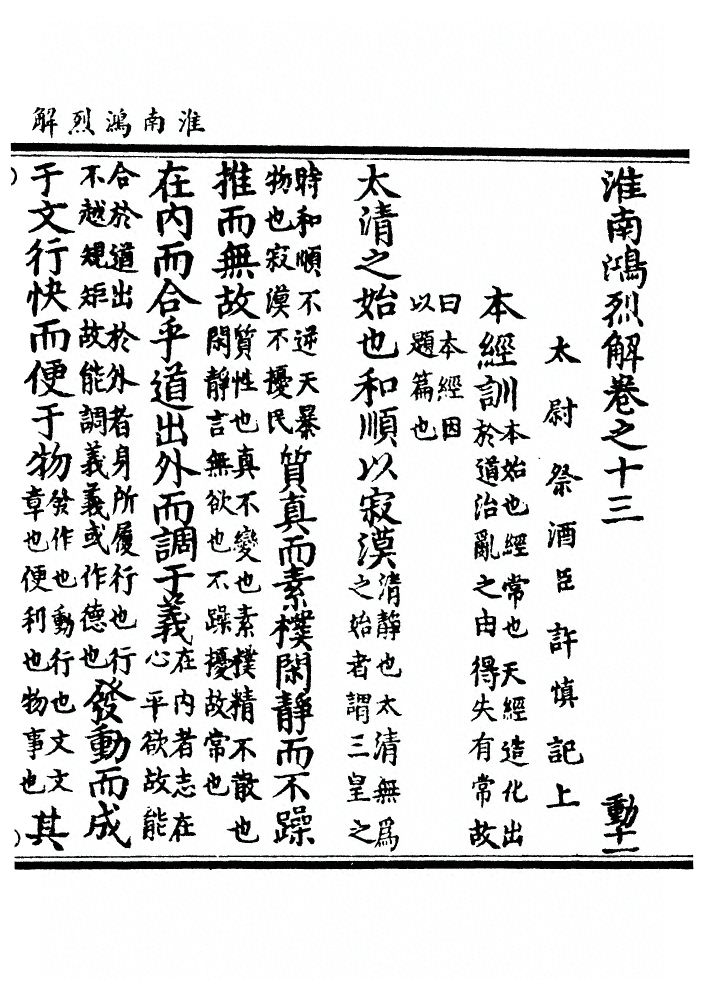 淮南鴻烈解
淮南鴻烈解卷之十三 動十一
太尉祭酒臣許慎記上
本經訓 本始也經常也天經造化出
於道治亂之由得失有常故
曰本經因
以題篇也
太清之始也和順以寂漠 清靜也太清無爲
之始者謂三皇之
時和順不逆天暴
物也寂漠不擾民 質真而素樸閑靜而不躁
推而無故 質性也真不變也素樸精不散也
閑靜言無欲也不躁擾故常也
在內而合乎道出外而調于義 在內者志在
心平欲故能
合於道出於外者身所履行也行
不越規矩故能調義義或作德也 發動而成
于文行快而便于物 發作也動行也文文
章也便利也物事也 其